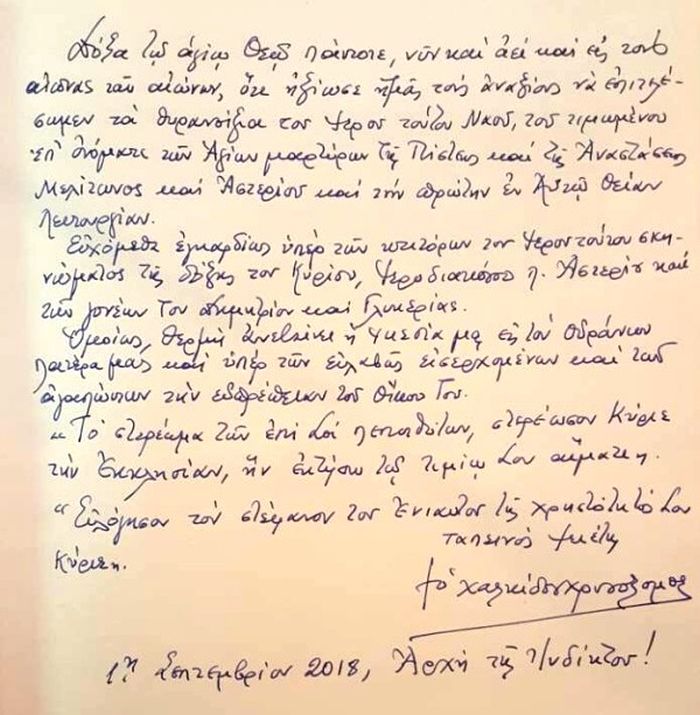 Δόξα τῷ ἁγίῳ Θεῷ πάντοτε, νῦν καὶ ἀεὶ καὶ εἰς τοὺς
αἰῶνας τῶν αἰώνων, ὅτι ἠξίωσε ἡμᾶς τοὺς ἀναξίους νὰ ἐπιτελέ-
σωμεν τὰ θυρανοίξια τοῦ Ἱεροῦ τούτου Ναοῦ, τοῦ τιμωμένου
ἐπ' ὀνόματι τῶν Ἁγίων μαρτύρων τῆς Πίστεως καὶ τῆς Ἀναστάσεως
Μελίτωνος καὶ Ἀστερίου καὶ τὴν πρώτην ἐν Αὐτῷ Θείαν
Λειτουργίαν.
Εὐχόμεθα ἐγκαρδίως ὑπὲρ τῶν κτιτόρων τοῦ Ἱεροῦ τούτου σκη-
νώματος τῆς δόξης τοῦ Κυρίου, Ἱεροδιακόνου π. Ἀστερίου καὶ
τῶν γονέων του Δημητρίου καὶ Γλυκερίας.
Ὁμοίως, θερμὴ ἀνεβαίνει ἡ ἱκεσία μας εἰς τὸν Οὐράνιον
Πατέρα μας καὶ ὑπὲρ τῶν εὐλαβῶς εἰσερχομένων καὶ τῶν
ἀγαπώντων τὴν εὐπρέπειαν τοῦ Οἴκου Του.
"Τὸ στερέωμα τῶν ἐπὶ Σοὶ πεποιθότων, στερέωσον Κύριε
τὴν Ἐκκλησίαν, ἣν ἐκτήσω τῷ τιμίῳ Σου αἵματι".
"Εὐλόγησον τὸν στέφανον τοῦ Ἐνιαυτοῦ τῆς χρηστότητός Σου
Κύριε".
ταπεινὸς ἱκέτης
† ὁ Χαλκίδος Χρυσόστομος
1η Σεπτεμβρίου 2018, Ἀρχὴ τῆς Ἰνδίκτου!